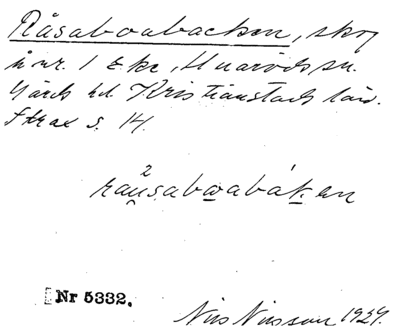 Råsaboabacken, skog
å nr. 1 & kr, Huaröds sn.
Gärds hd. Kristianstads län.
Strax s. 14.
2
rau̯sabωabák̠en
Nr 5332.
Nils Nilsson 1929.